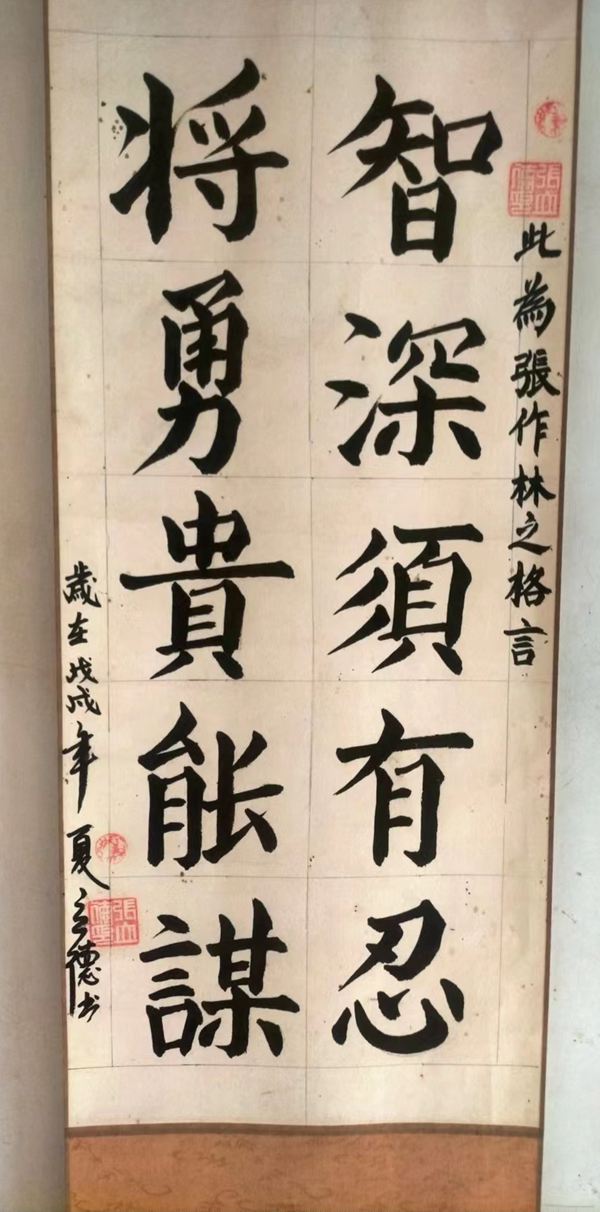 張立德印
此為張作林之格言
智深須有忍
将勇貴能謀
歲在戊戌年夏立德书
張立德印